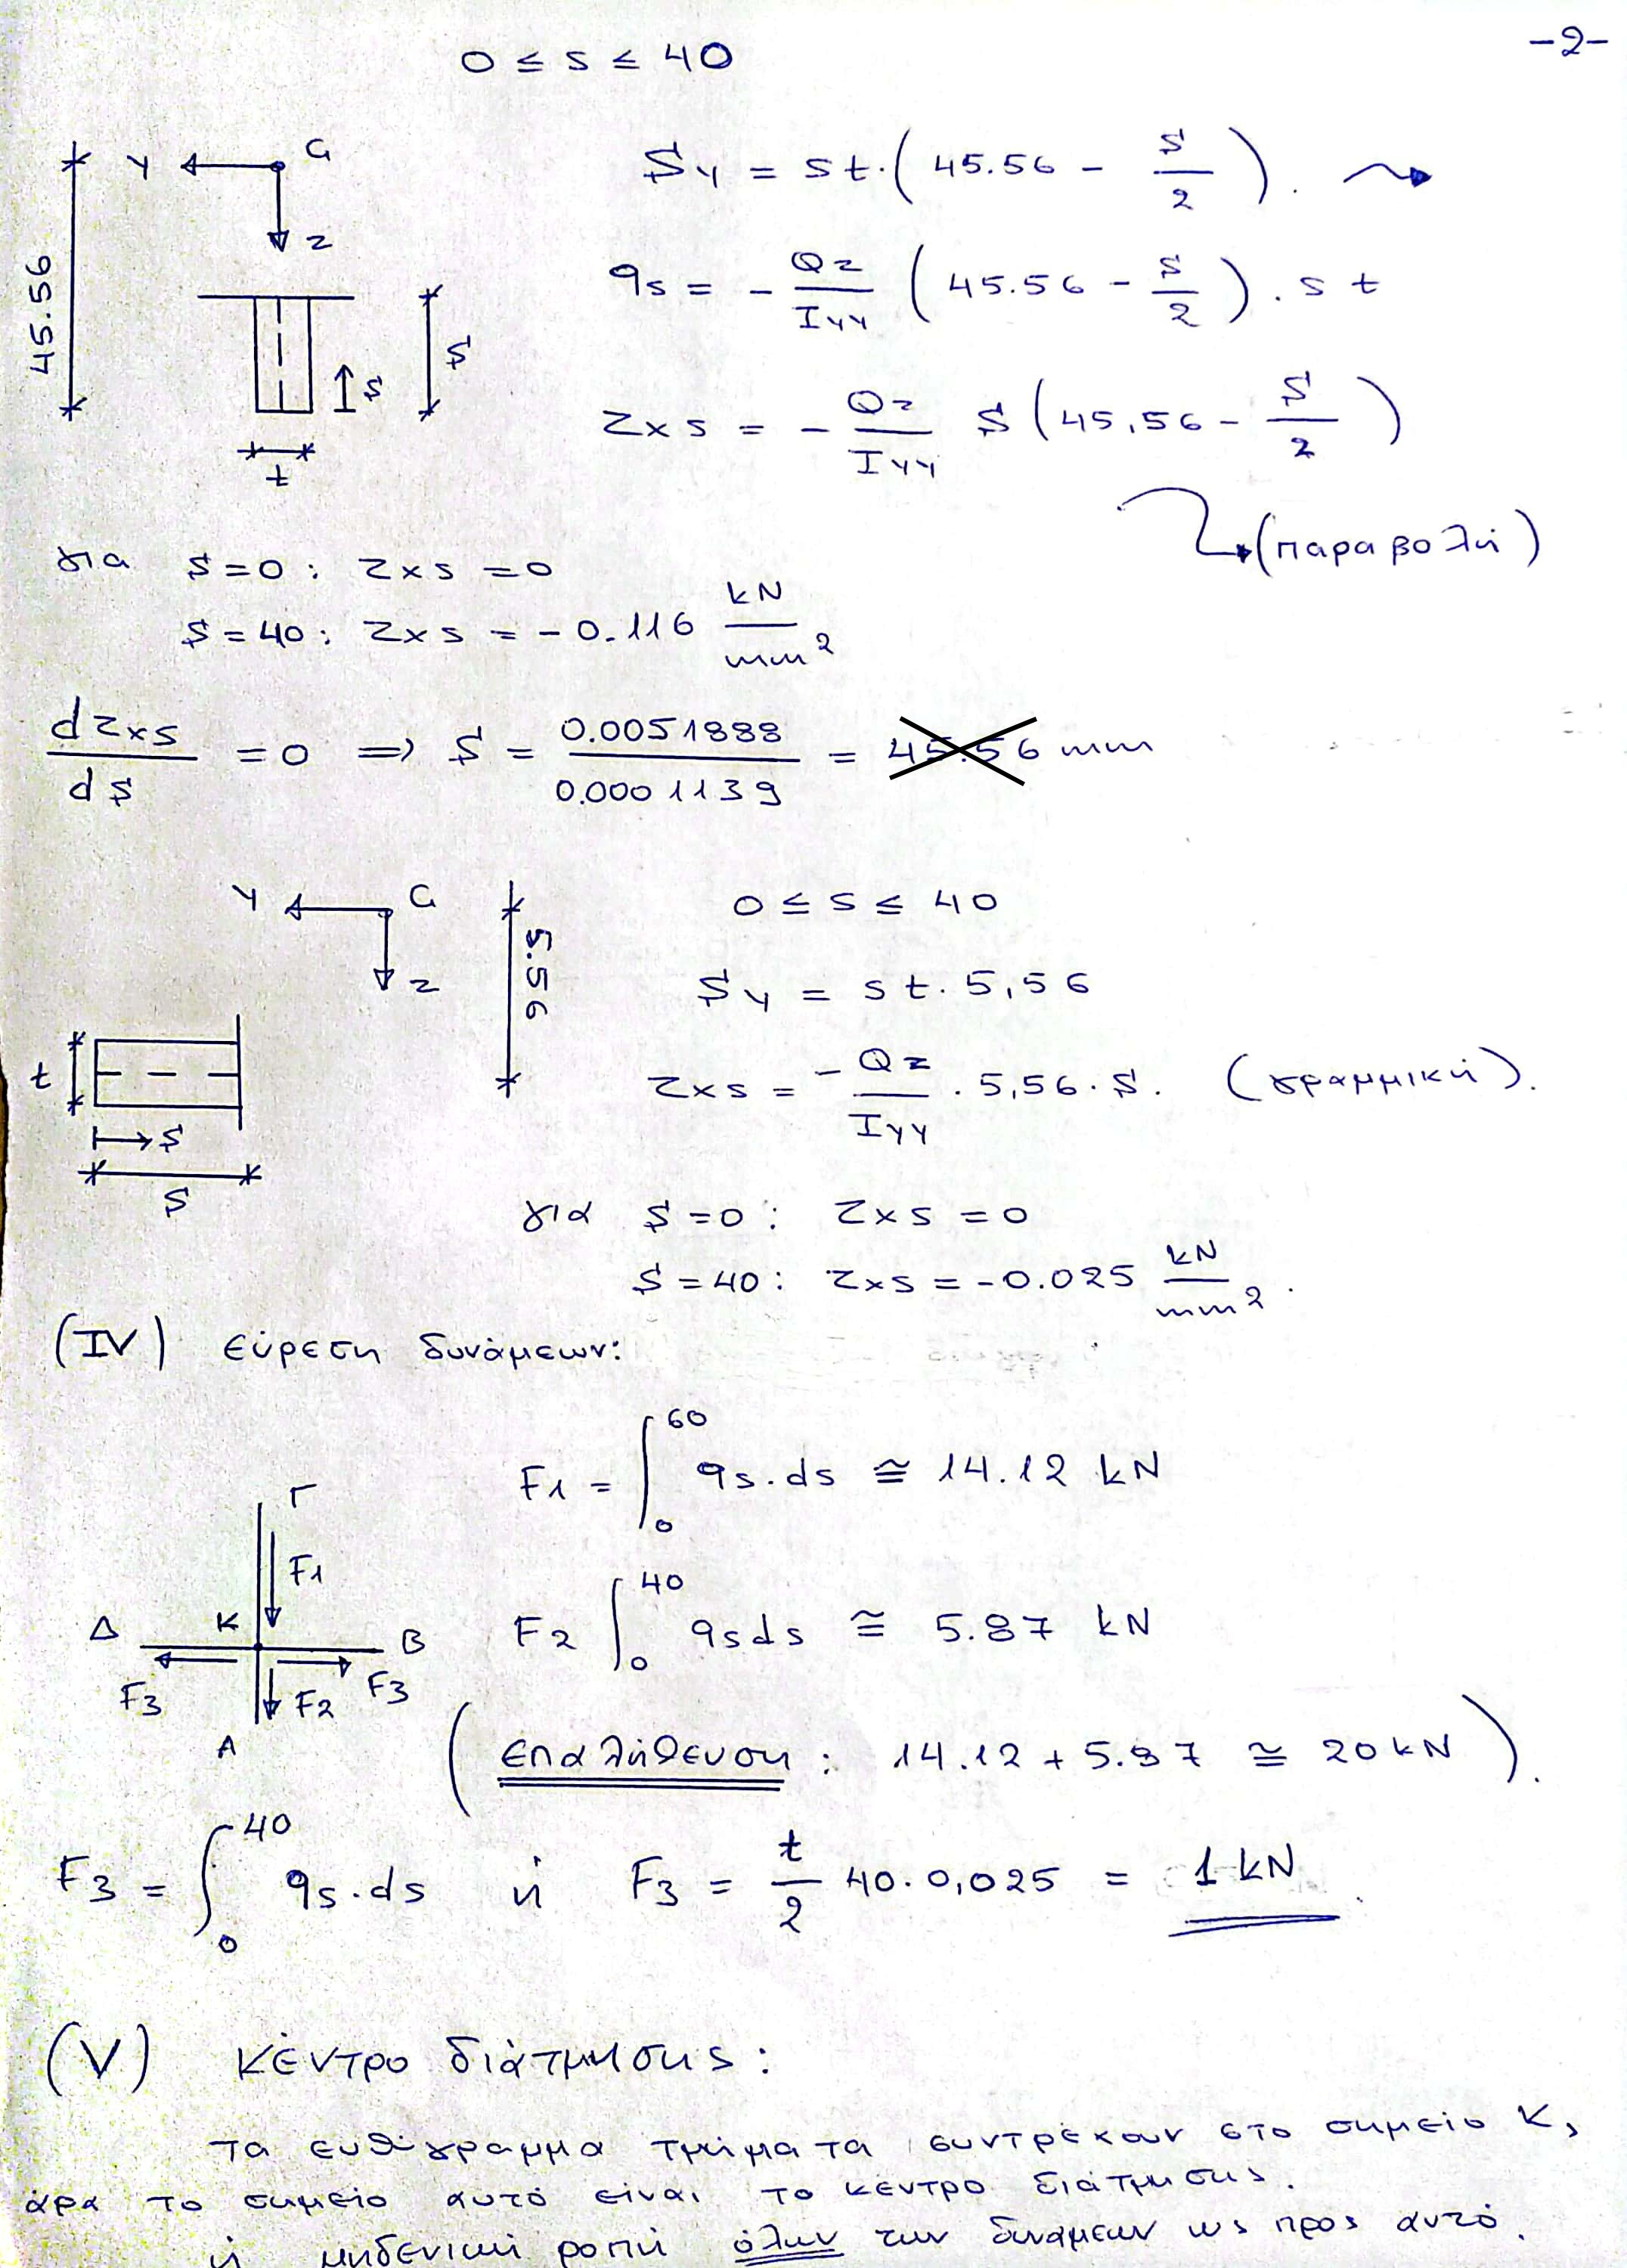 -2-
0 ≤ s ≤ 40
45.56
Y G
z
s
s
t
Sy = st·(45.56 - s/2).
qs = - Qz/Iyy (45.56 - s/2). s t
τxs = - Qz/Iyy s(45,56 - s/2)
(παραβολή)
για s=0: τxs = 0
s=40: τxs = -0.116 kN/mm²
dτxs/ds = 0 ⇒ s = 0.0051888/0.0001139 = 45.56 mm
Y G
z
5.56
t
s
s
0 ≤ s ≤ 40
Sy = st. 5,56
τxs = -Qz/Iyy . 5,56. s. (γραμμική).
για s=0: τxs = 0
s=40: τxs = -0.025 kN/mm².
(IV) εύρεση δυνάμεων:
Γ
F1
Δ K B
F3 F2 F3
A
F1 = ∫₀⁶⁰ qs.ds ≅ 14.12 kN
F2 ∫₀⁴⁰ qsds ≅ 5.87 kN
(επαλήθευση: 14.12 + 5.87 ≅ 20kN).
F3 = ∫₀⁴⁰ qs.ds ή F3 = t/2 40. 0,025 = 1 kN.
(V) κέντρο διάτμησης:
τα ευθύγραμμα τμήματα συντρέχουν στο σημείο K,
άρα το σημείο αυτό είναι το κέντρο διάτμησης.
ή μηδενική ροπή όλων των δυνάμεων ως προς αυτό.